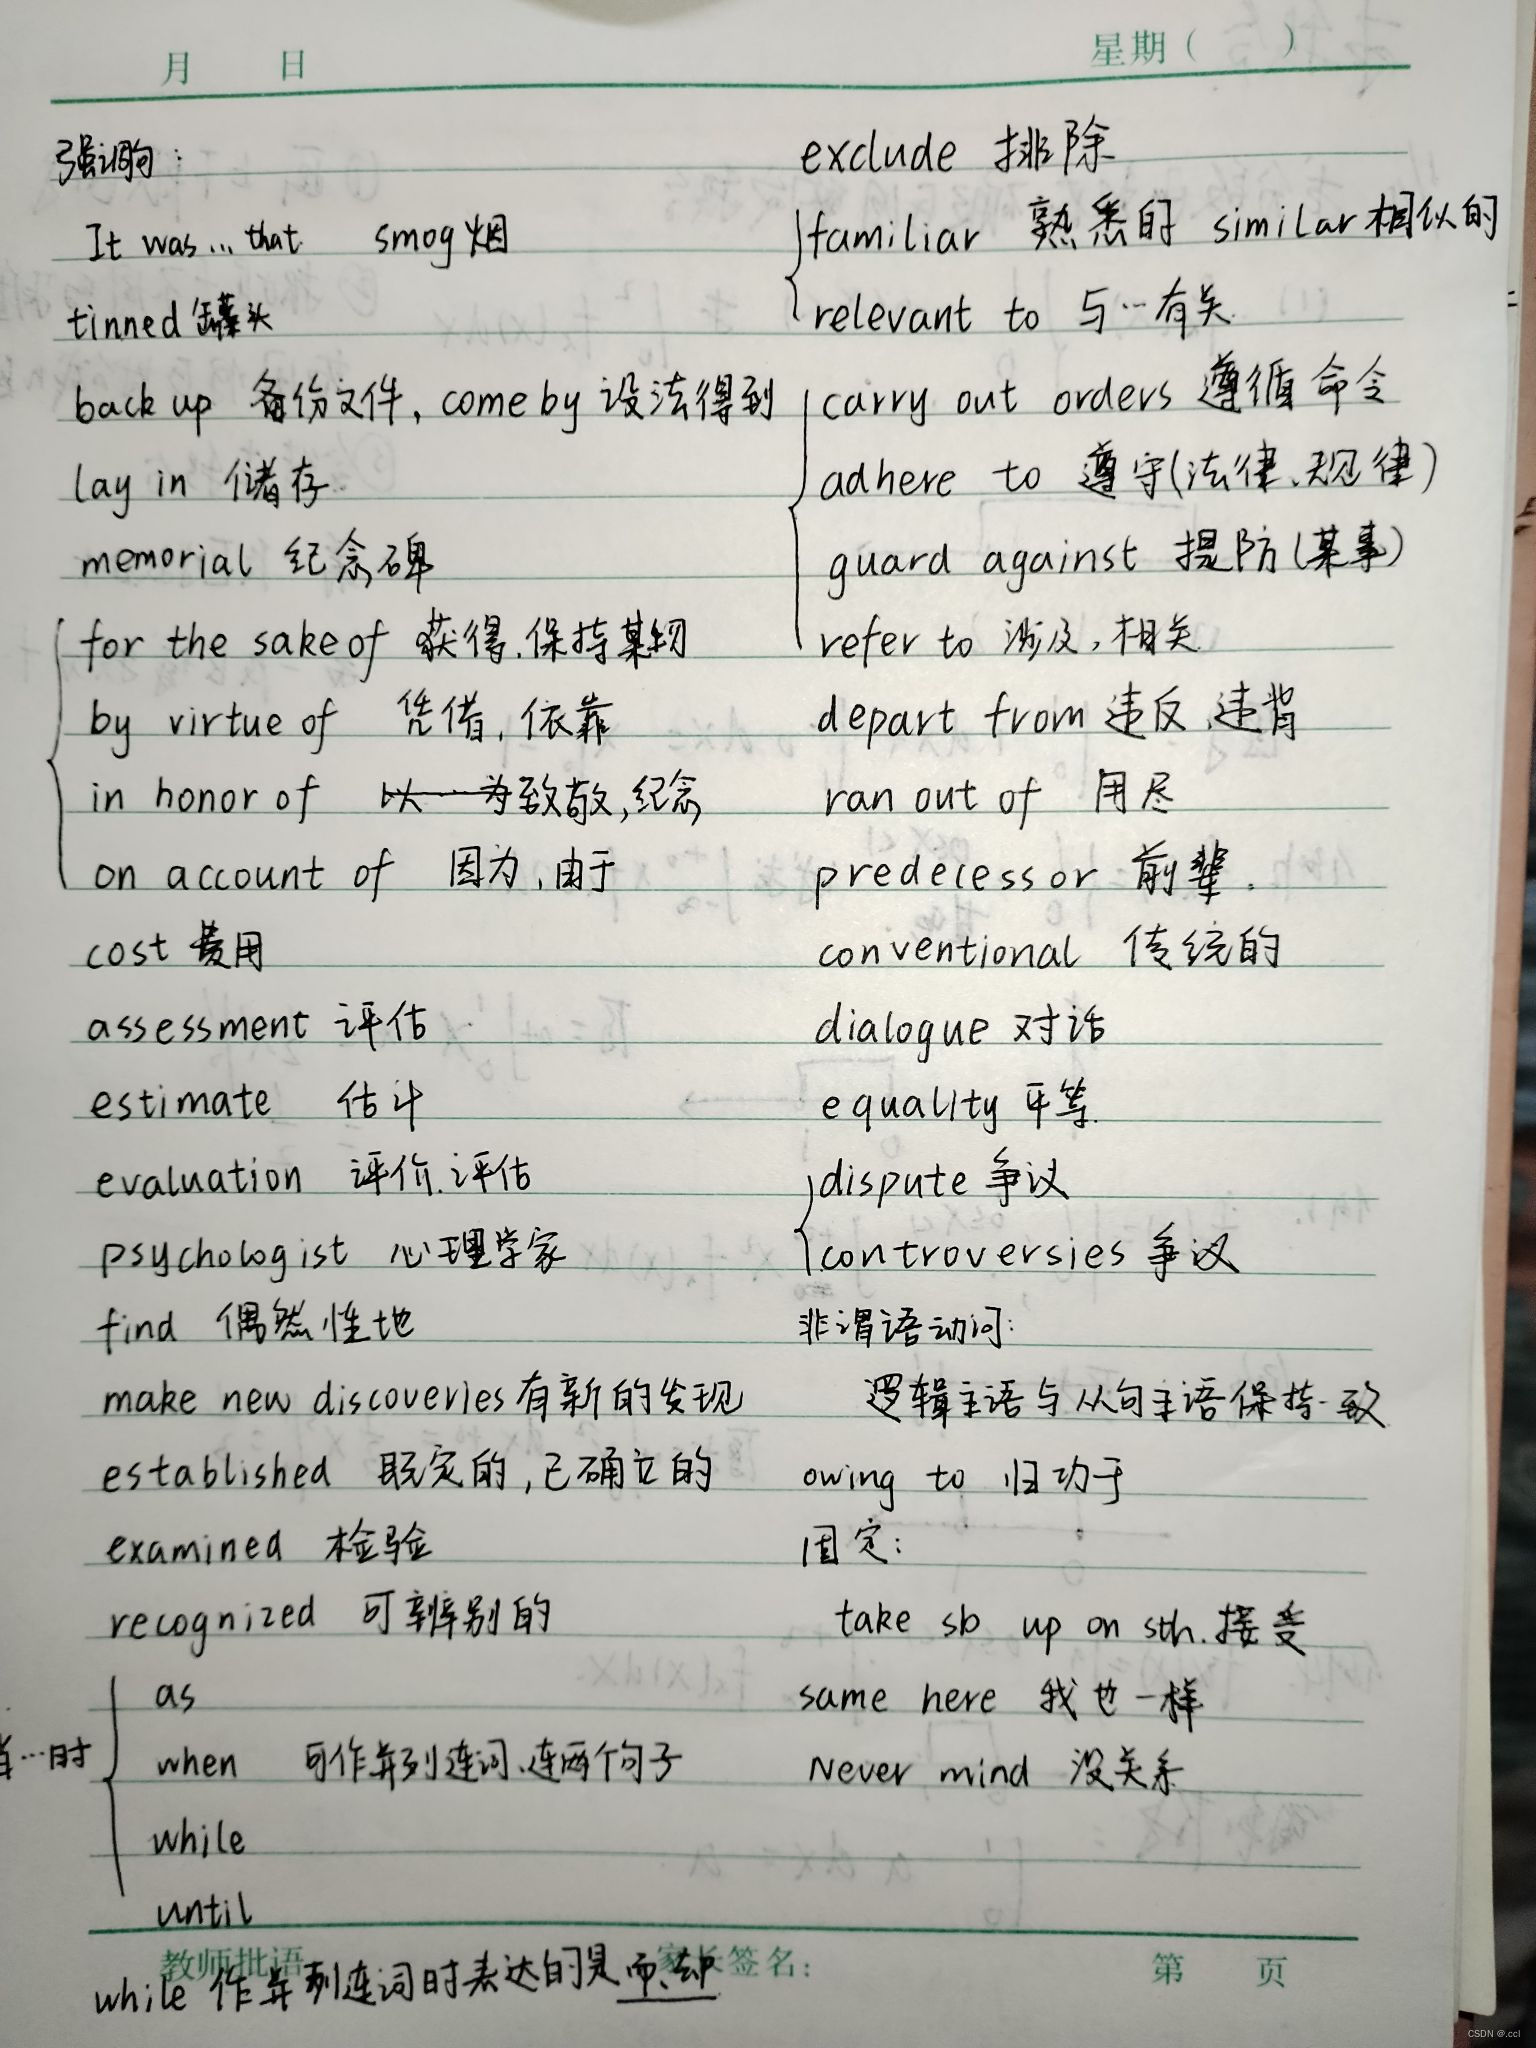 月 日 星期( )
强调句：
It was...that smog 烟
tinned 罐头
back up 备份文件, come by 设法得到
lay in 储存
memorial 纪念碑
for the sake of 获得、保持某物
by virtue of 凭借, 依靠
in honor of 以…为致敬, 纪念
on account of 因为、由于
cost 费用
assessment 评估
estimate 估计
evaluation 评价、评估
psychologist 心理学家
find 偶然性地
make new discoveries 有新的发现
established 既定的, 已确立的
examined 检验
recognized 可辨别的
as
…时 when 可作并列连词、连两个句子
while
until
while 作并列连词时表达的是而、却
exclude 排除
familiar 熟悉的 similar 相似的
relevant to 与…有关
carry out orders 遵循命令
adhere to 遵守(法律、规律)
guard against 提防(某事)
refer to 涉及, 相关
depart from 违反、违背
ran out of 用尽
predecessor 前辈.
conventional 传统的
dialogue 对话
equality 平等
dispute 争议
controversies 争议
非谓语动词:
逻辑主语与从句主语保持一致
owing to 归功于
固定:
take sb up on sth. 接受
same here 我也一样
Never mind 没关系
教师批语 家长签名: 第 页
CSDN @.ccl